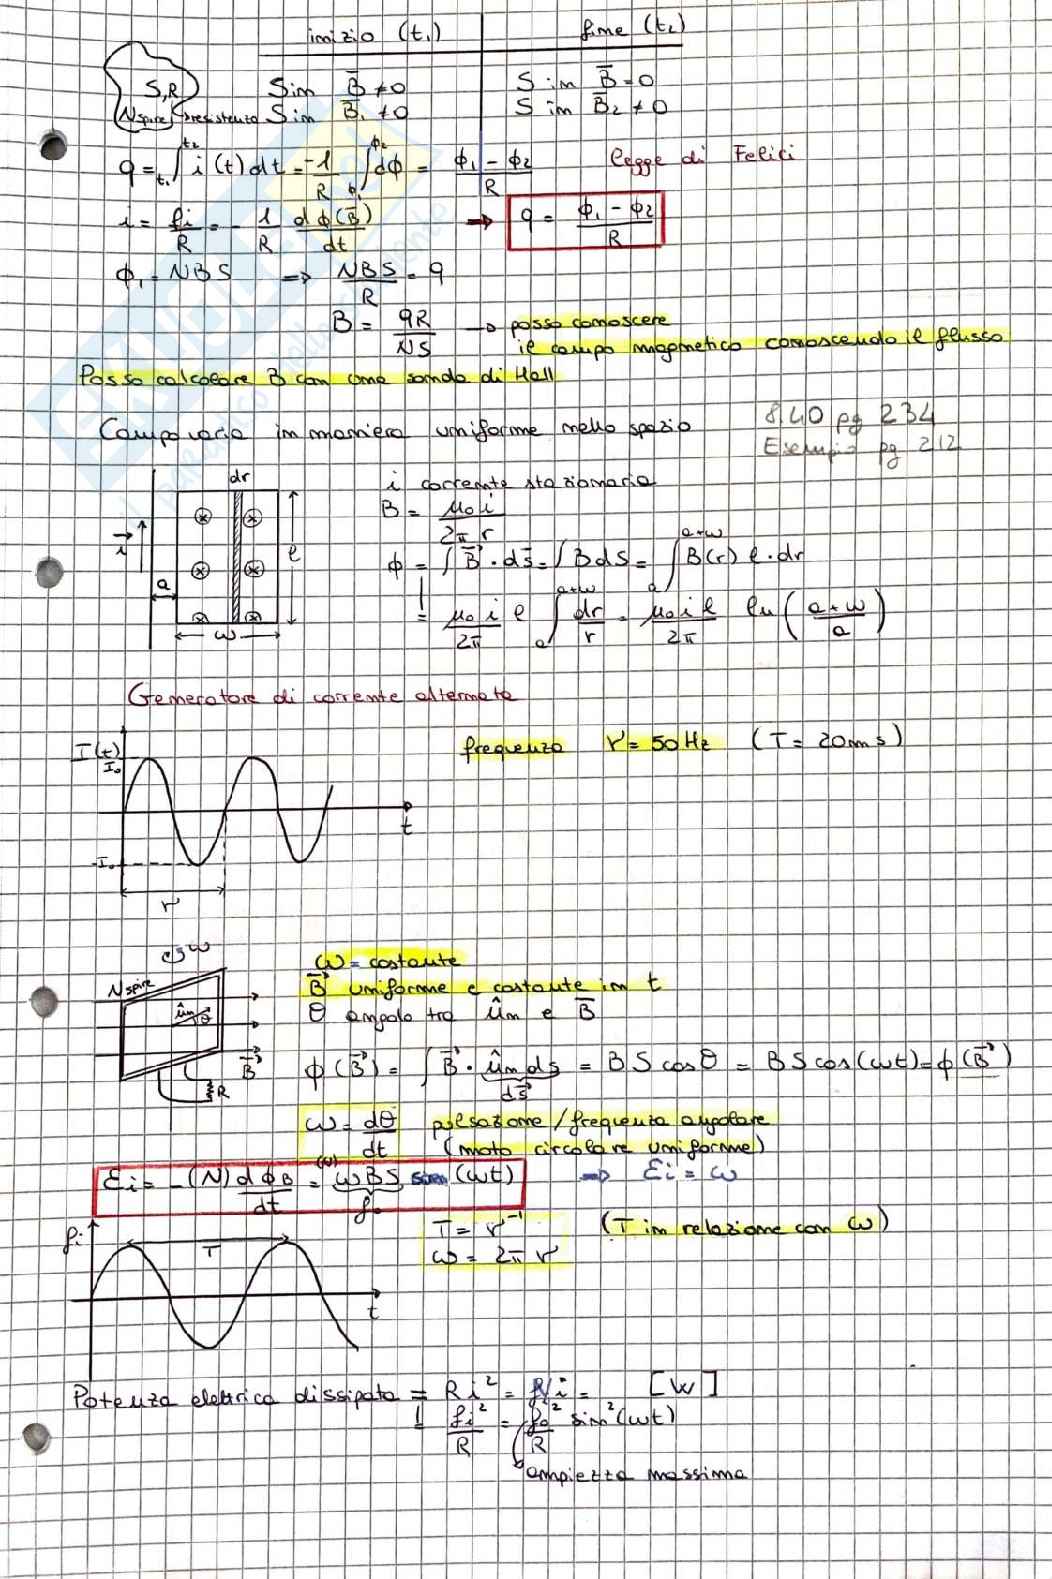 inizio (t₁) fine (t₂)
S,R S in B̄ ≠ 0 S in B̄ = 0
N spire resistenza S in B̄₁ ≠ 0 S in B̄₂ ≠ 0
q = ∫_{t₁}^{t₂} i(t) dt = -1/R ∫_{φ₁}^{φ₂} dφ = (φ₁ - φ₂)/R legge di Felici
i = fi/R = - 1/R dφ(B̄)/dt → q = (φ₁ - φ₂)/R
φ₁ = NBS => NBS/R = q
B = qR/NS → posso conoscere
il campo magnetico conoscendo il flusso
Posso calcolare B con una sonda di Hall
Campo varia in maniera uniforme nello spazio 8.40 pg 234
Esempio pg 212
dr i corrente stazionaria
B = μ₀i/2π r
i⃗ a ℓ w
φ = ∫B⃗ · ds̄ = ∫B dS = ∫_a^{a+w} B(r) ℓ · dr
= μ₀ i/2π ℓ ∫_a^{a+w} dr/r = μ₀iℓ/2π ln((a+w)/a)
Generatore di corrente alternata
I(t) frequenza ν = 50 Hz (T = 20ms)
I₀
t
-I₀
ν
ω ω = costante
N spire B⃗ uniforme e costante in t
ûn θ θ angolo tra ûn e B̄
B⃗ R φ(B⃗) = ∫B⃗ · ûn ds = BS cosθ = BS cos(ωt) = φ(B⃗)
ds⃗
ω = dθ/dt pulsazione / frequenza angolare
(moto circolare uniforme)
Ɛi = -(N) dφB/dt = (N) ωBS sin(ωt) => Ɛi = ω
f₀
fi T T = ν⁻¹ (T in relazione con ω)
ω = 2π ν
t
Potenza elettrica dissipata = Ri² = fi i = [W]
fi²/R = f₀²/R sin²(ωt)
ampiezza massima